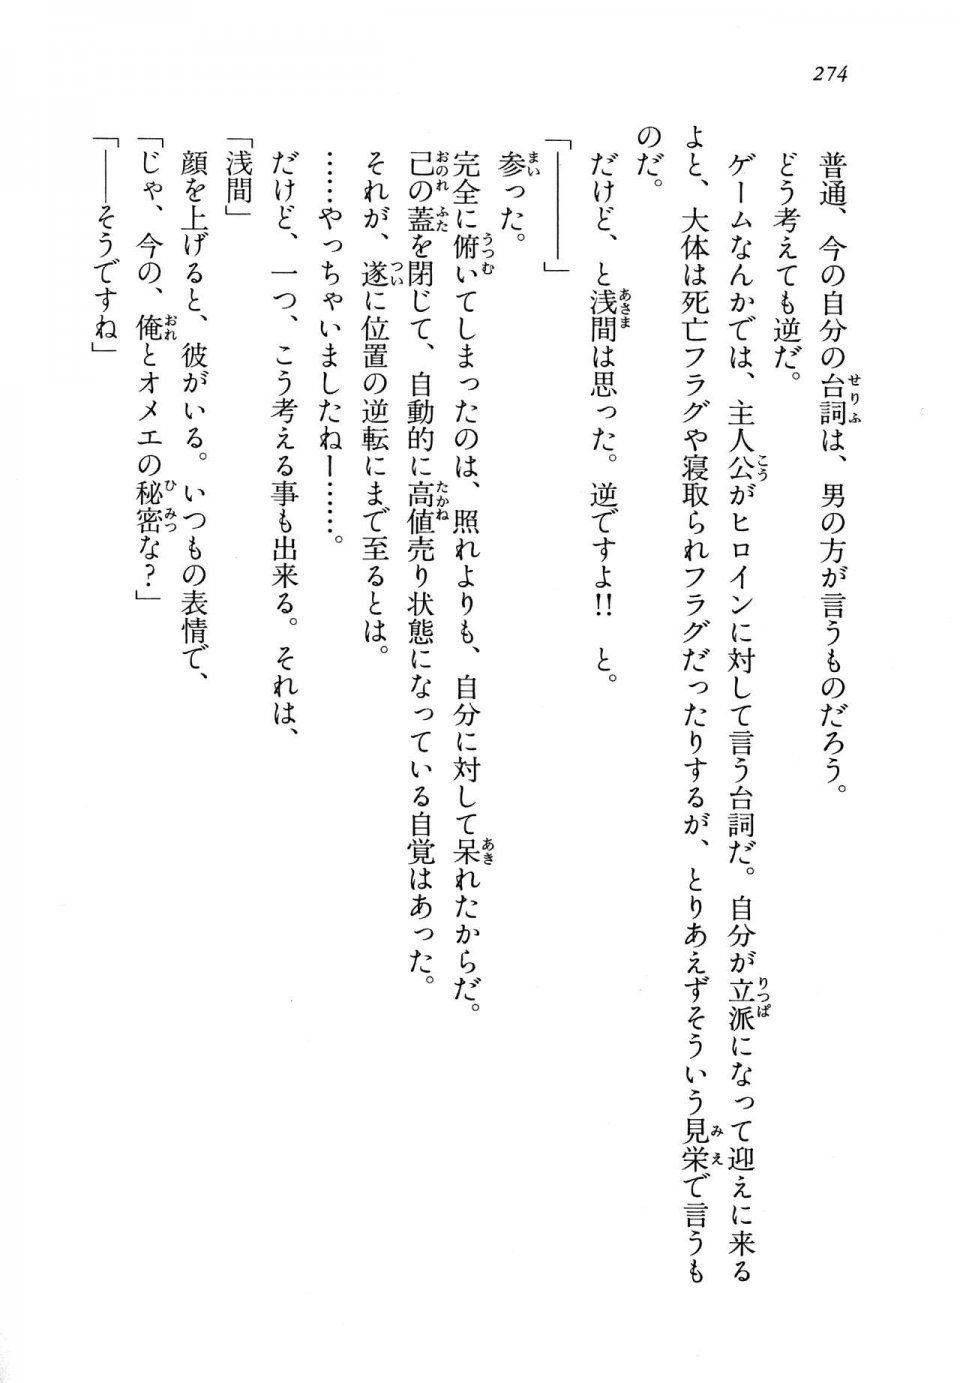 274
普通、今の自分の台詞は、男の方が言うものだろう。
どう考えても逆だ。
ゲームなんかでは、主人公がヒロインに対して言う台詞だ。自分が立派になって迎えに来る
よと、大体は死亡フラグや寝取られフラグだったりするが、とりあえずそういう見栄で言うも
のだ。
だけど、と浅間は思った。逆ですよ!! と。
「――――」
参った。
完全に俯いてしまったのは、照れよりも、自分に対して呆れたからだ。
己の蓋を閉じて、自動的に高値売り状態になっている自覚はあった。
それが、遂に位置の逆転にまで至るとは。
……やっちゃいましたねー……。
だけど、一つ、こう考える事も出来る。それは、
「浅間」
顔を上げると、彼がいる。いつもの表情で、
「じゃ、今の、俺とオメエの秘密な？」
「――そうですね」